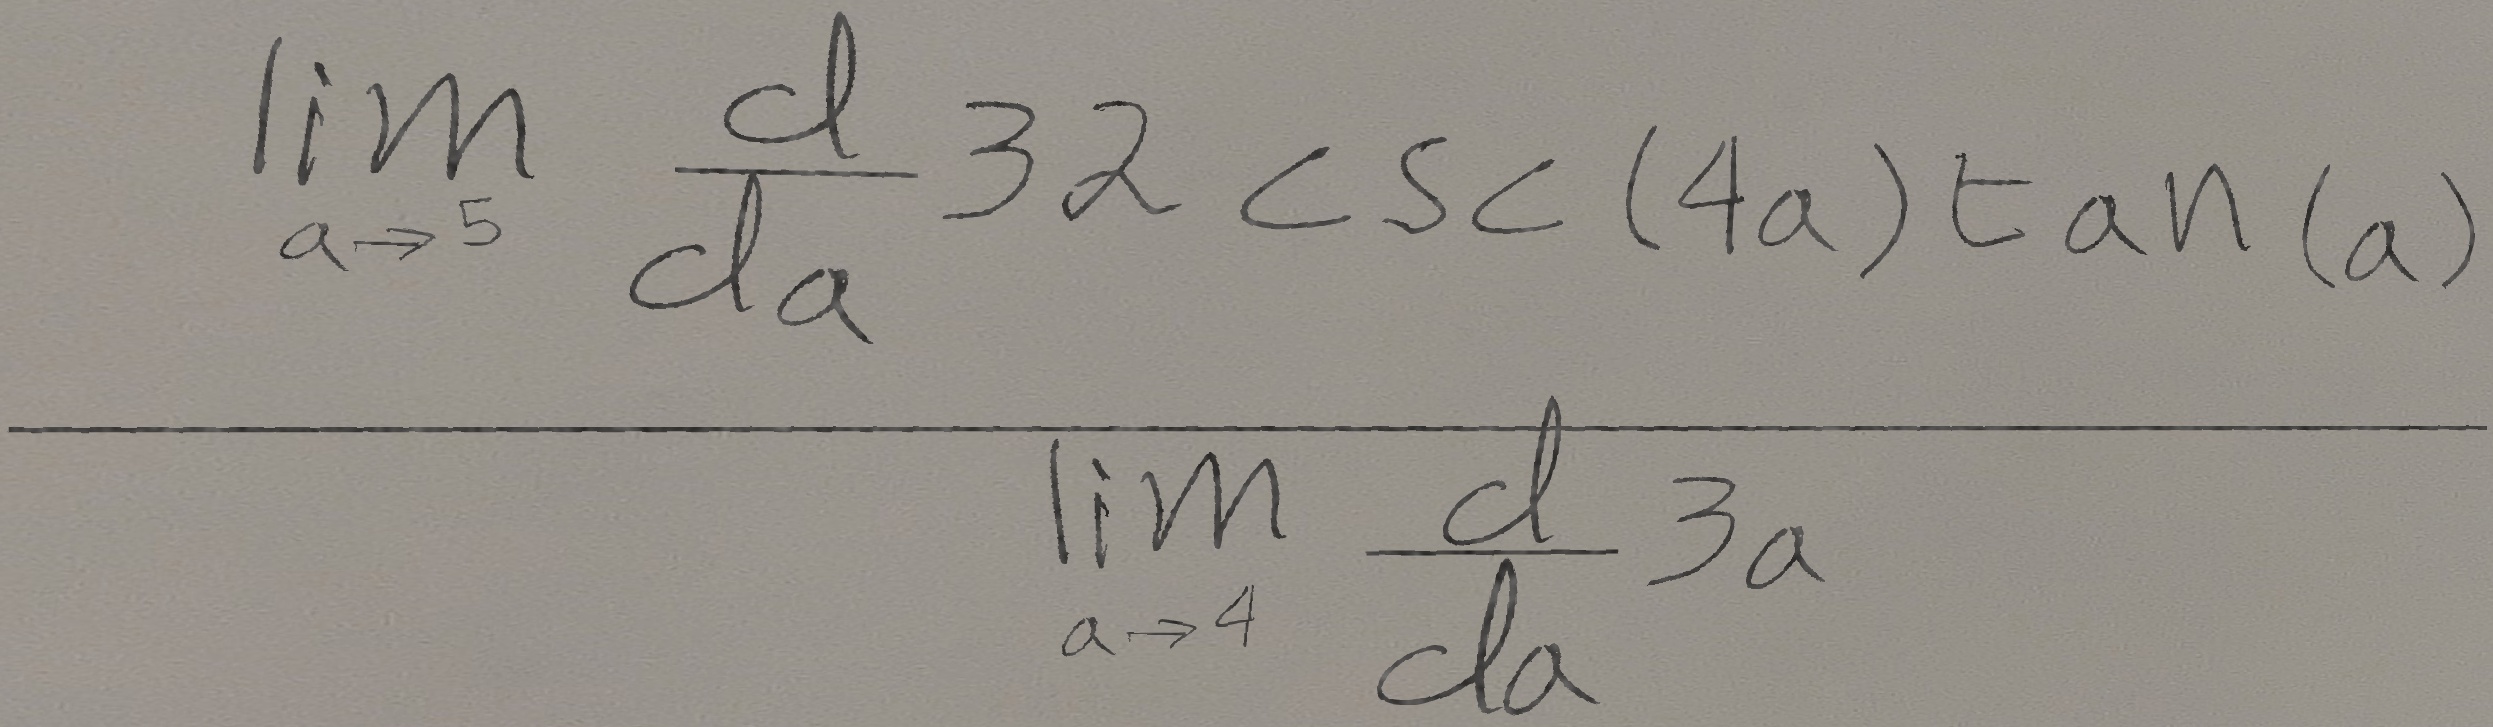 \frac{\lim_{a \to 5} \frac{d}{da} 32 \csc(4a) \tan(a)}{\lim_{a \to 4} \frac{d}{da} 3a}